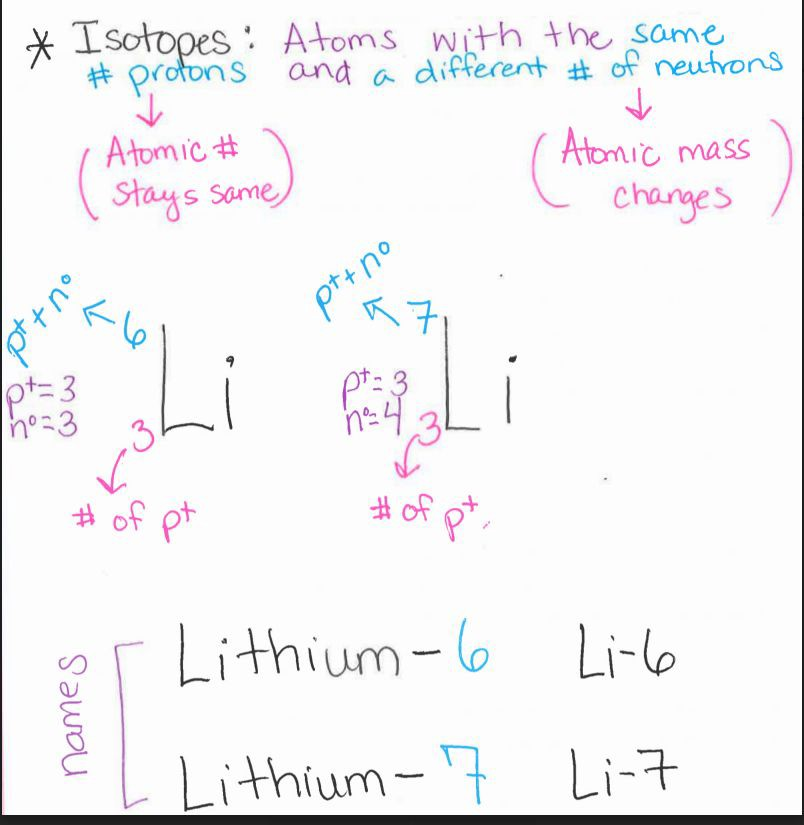 * Isotopes: Atoms with the same
# protons and a different # of neutrons
(Atomic #
stays same)
(Atomic mass
changes)
p⁺+n⁰
6
Li
p⁺=3
n⁰=3
3
# of p⁺
p⁺+n⁰
7
Li
p⁺=3
n⁰=4
3
# of p⁺.
names
Lithium-6 Li-6
Lithium-7 Li-7